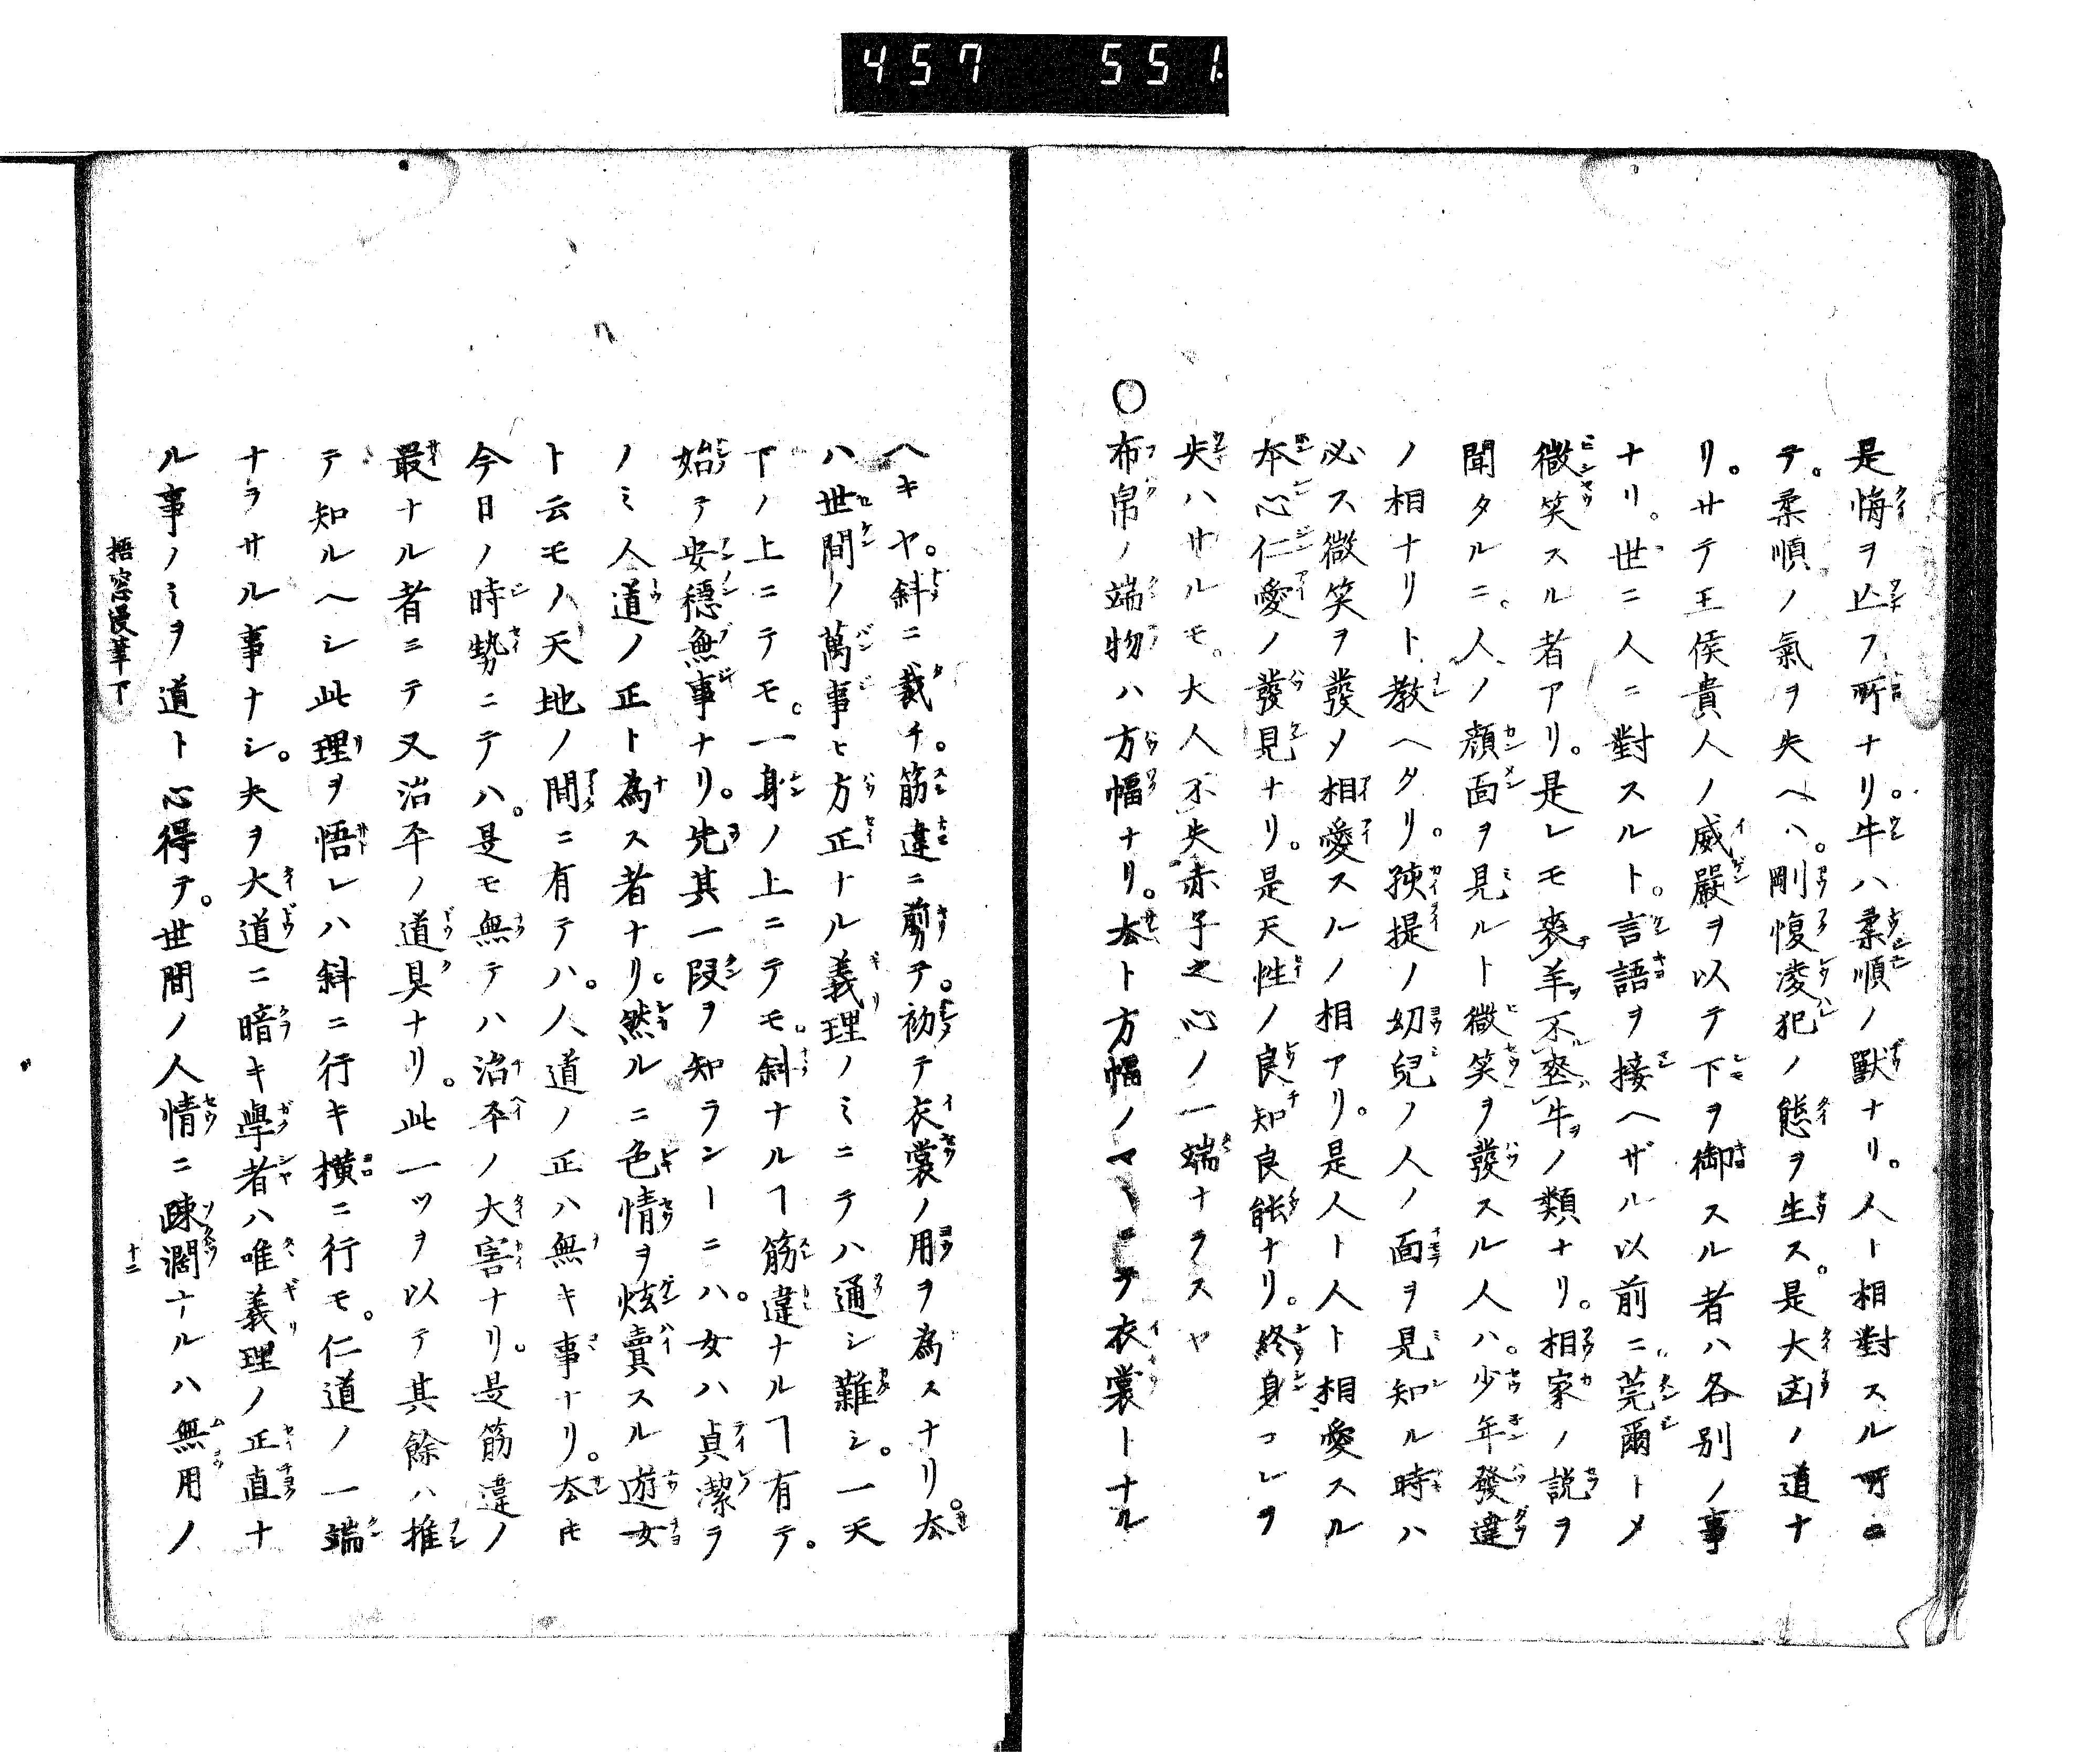 457 551
是悔ヲ止フ所ナリ。牛ハ柔順ノ獸ナリ。人ト相對スル所ニ
テ。柔順ノ氣ヲ失ヘハ。剛愎凌犯ノ態ヲ生ス。是大凶ノ道ナ
リ。サテ王侯貴人ノ威嚴ヲ以テ下ヲ御スル者ハ各別ノ事
ナリ。世ニ人ニ對スルト。言語ヲ接ヘザル以前ニ莞爾トメ
微笑スル者アリ。是レモ喪羊不喪牛ノ類ナリ。相家ノ説ヲ
聞タルニ。人ノ顔面ヲ見ルト微笑ヲ發スル人ハ。少年發違
ノ相ナリト教ヘタリ。孩提ノ幼兒ノ人ノ面ヲ見知ル時ハ
必ス微笑ヲ發メ相愛スルノ相アリ。是人ト人ト相愛スル
本心仁愛ノ發見ナリ。是天性ノ良知良能ナリ。終身コレヲ
失ハサルモ。大人不失赤子之心ノ一端ナラスヤ
○布帛ノ端物ハ方幅ナリ。去ト方幅ノマヽニテ衣裳トナル
ヘキヤ。斜ニ裁チ。筋違ニ剪テ。初テ衣裳ノ用ヲ為スナリ。去
ハ世間ノ萬事ヒ方正ナル義理ノミニテハ通シ難シ。一天
下ノ上ニテモ。一身ノ上ニテモ。斜ナルヿ筋違ナルヿ有テ。
始テ安穩無事ナリ。先其一段ヲ知ラントニハ。女ハ貞潔ヲ
ノミ人道ノ正ト為ス者ナリ。然ルニ色情ヲ炫賣スル遊女
ト云モノ天地ノ間ニ有テハ。人道ノ正ハ無キ事ナリ。去𪜈
今日ノ時勢ニテハ。是モ無テハ治平ノ大害ナリ。是筋違ノ
最ナル者ニテ又治平ノ道具ナリ。此一ツヲ以テ其餘ハ推
テ知ルヘシ此理ヲ悟レハ斜ニ行キ横ニ行モ。仁道ノ一端
ナラサル事ナシ。夫ヲ大道ニ暗キ學者ハ唯義理ノ正直ナ
ル事ノミヲ道ト心得テ。世間ノ人情ニ疎濶ナルハ無用ノ
梧窓漫筆下
十二